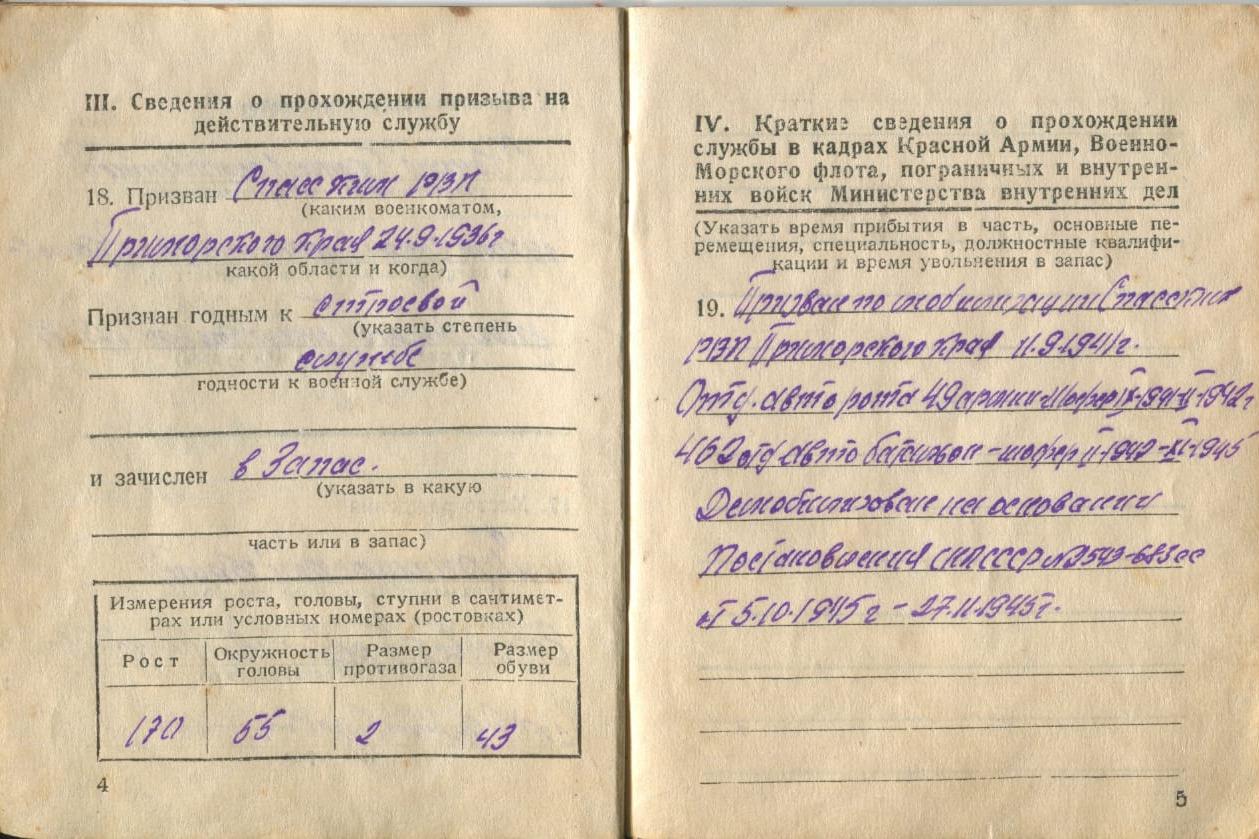 III. Сведения о прохождении призыва на
действительную службу
18. Призван Спасским РВК
(каким военкоматом,
Приморского края 24.9-1936г
какой области и когда)
Признан годным к строевой
(указать степень
службе
годности к военной службе)
и зачислен в Запас.
(указать в какую
часть или в запас)
Измерения роста, головы, ступни в сантимет-
рах или условных номерах (ростовках)
Рост
Окружность
головы
Размер
противогаза
Размер
обуви
170 55 2 43
4
IV. Краткие сведения о прохождении
службы в кадрах Красной Армии, Военно-
Морского флота, пограничных и внутрен-
них войск Министерства внутренних дел
(Указать время прибытия в часть, основные пе-
ремещения, специальность, должностные квалифи-
кации и время увольнения в запас)
19. Призван по мобилизации Спасским
РВК Приморского края 11.9-1941г.
Отд. авто рота 49 армии-шофер IX-1941-II-1942г
462 отд авто батальон - шофер II-1942-XI-1945
Демобилизован на основании
Постановления СНК СССР №2543-683сс
от 5.10.1945г - 27.11.1945г.
5